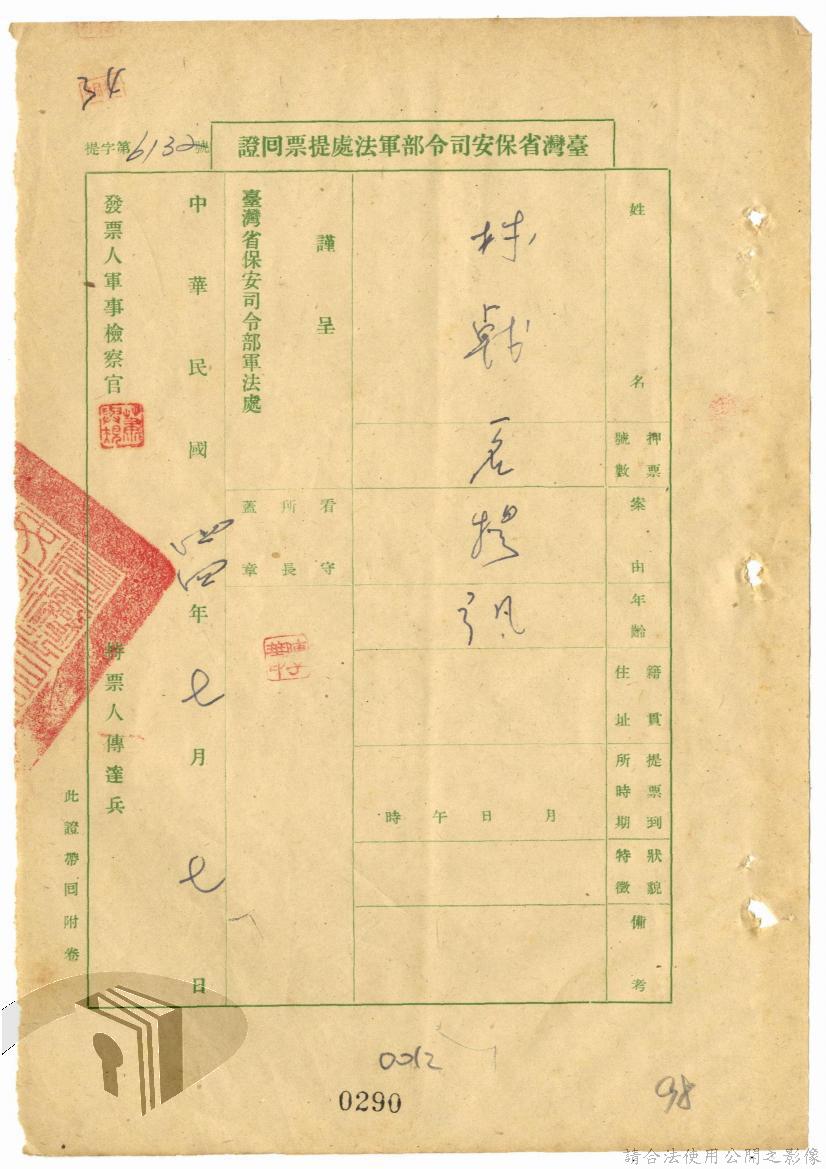 34
臺灣省保安司令部軍法處提票回證
提字第6132號
姓名
押票號數
案由
年齡
籍貫住址
提票到所時期
狀貌特徵
備考
林戟
提訊
月 日 午 時
謹呈
臺灣省保安司令部軍法處
看守所長蓋章
中華民國四四年七月七日
發票人軍事檢察官
持票人傳達兵
此證帶回附卷
0012
0290
98
請合法使用公開之影像